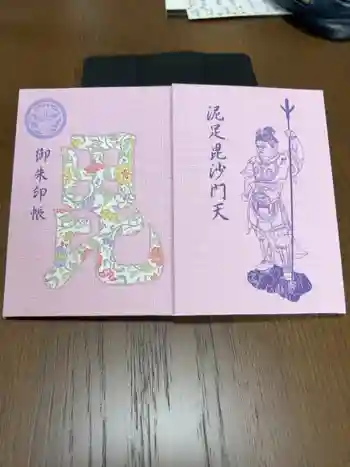 泥足毘沙門天
毘
御朱印帳